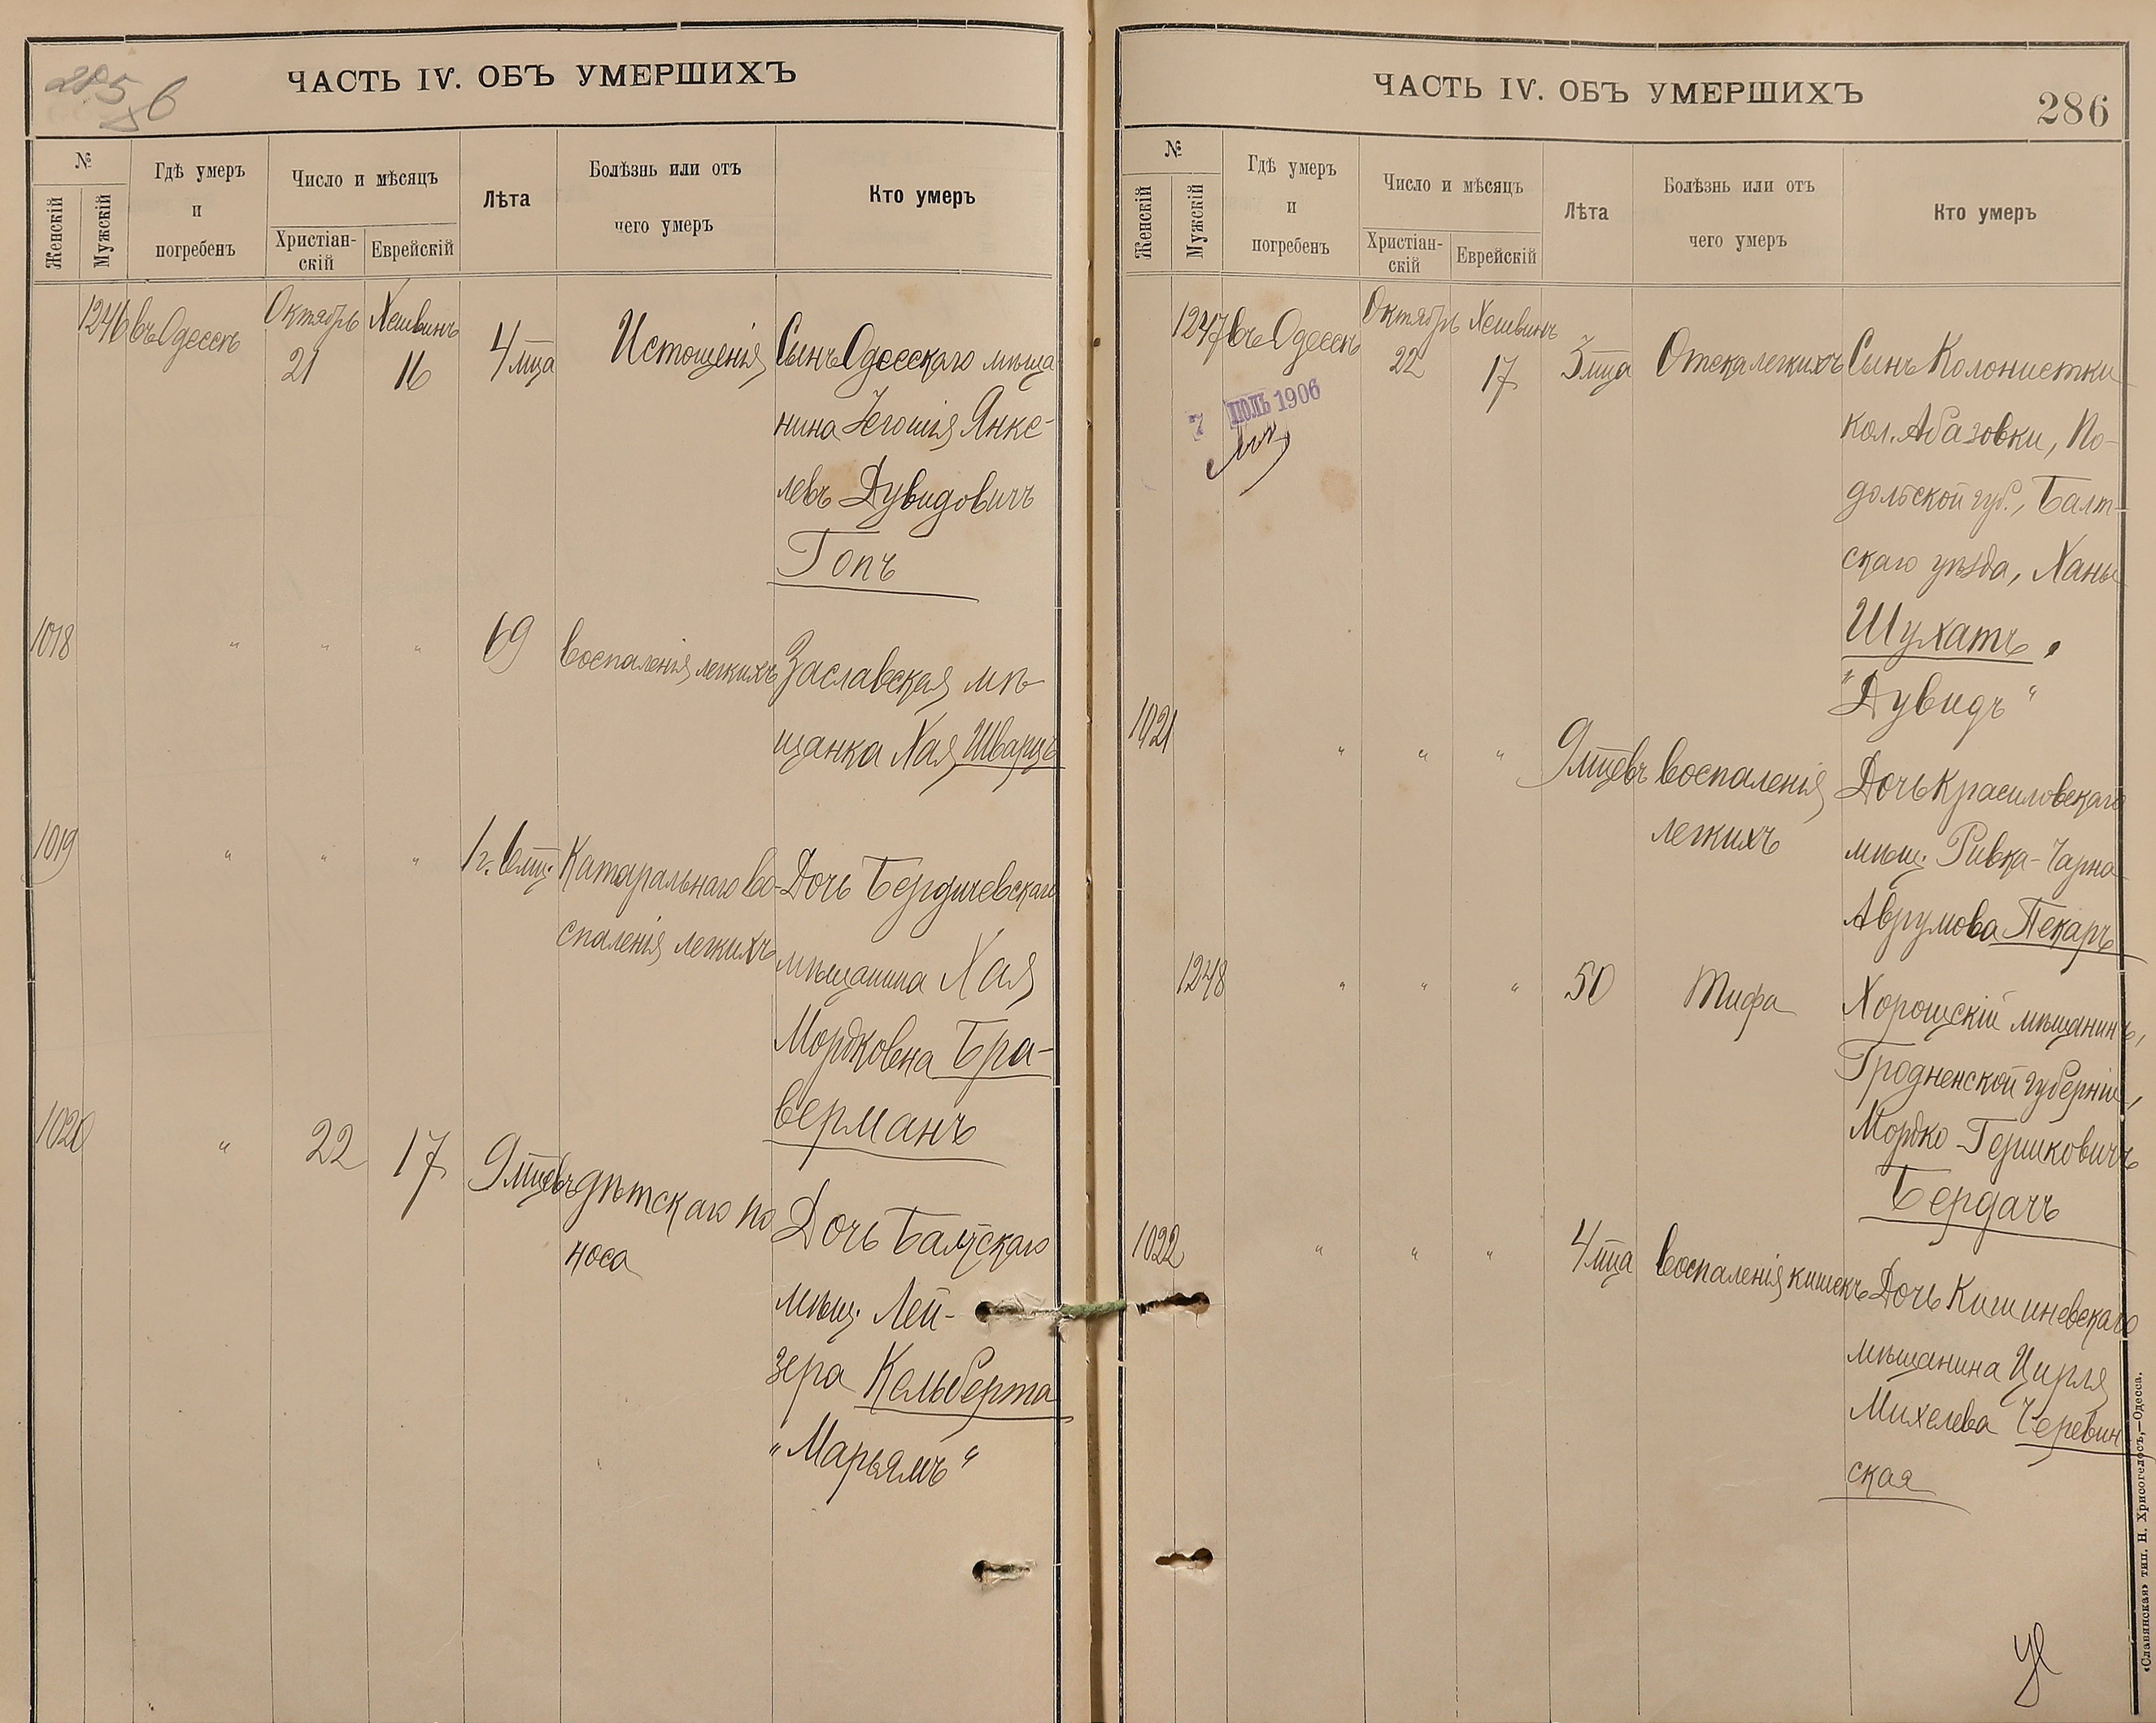 285 б
ЧАСТЬ IV. ОБЪ УМЕРШИХЪ
№
Женскій
Мужскій
Гдѣ умеръ
и
погребенъ
Число и мѣсяцъ
Христіан-
скій
Еврейскій
Лѣта
Болѣзнь или отъ
чего умеръ
Кто умеръ
1246 въ Одессѣ Октябрь 21 Хешвинъ 16 4 мца Истощенія Сынъ Одесскаго мѣща-
нина Іегошія Янке-
левъ Дувидовичъ
Гопъ
1018 " " " 69 воспаленія легкихъ Заславская мѣ-
щанка Хая Шварцъ
1019 " " " 1 г. 6 мц. Катаральнаго во- Дочь Бердичевскаго
спаленія легкихъ мѣщанина Хая
Мордковна Бра-
верманъ
1020 " 22 17 9 мцевъ дѣтскаго по Дочь Балтскаго
носа
мѣщ. Лей-
зера Кельберта
"Марьямъ"
ЧАСТЬ IV. ОБЪ УМЕРШИХЪ
286
№
Женскій
Мужскій
Гдѣ умеръ
и
погребенъ
Число и мѣсяцъ
Христіан-
скій
Еврейскій
Лѣта
Болѣзнь или отъ
чего умеръ
Кто умеръ
1247 въ Одессѣ Октябрь 22 Хешвинъ 17 3 мца Отека легкихъ Сынъ Колонистки
7 ІЮЛЬ 1906
кол. Абазовки, По-
дольской губ., Балт-
скаго уѣзда, Ханы
Шухатъ.
"Дувидъ"
1021 " " " 9 мцевъ воспаленія Дочь Красиловскаго
легкихъ мѣщ. Ривка-Чарна
Аврумова Пекарь
1248 " " " 50 Тифа Хорощскій мѣщанинъ,
Гродненской губерніи,
Мордко Гершковичъ
Бердачъ
1022 " " " 4 мца воспаленія кишекъ Дочь Кишиневскаго
мѣщанина Цирля
Михелева Черевин
ская
«Славянская» тип. Н. Хрисогелосъ,—Одесса.